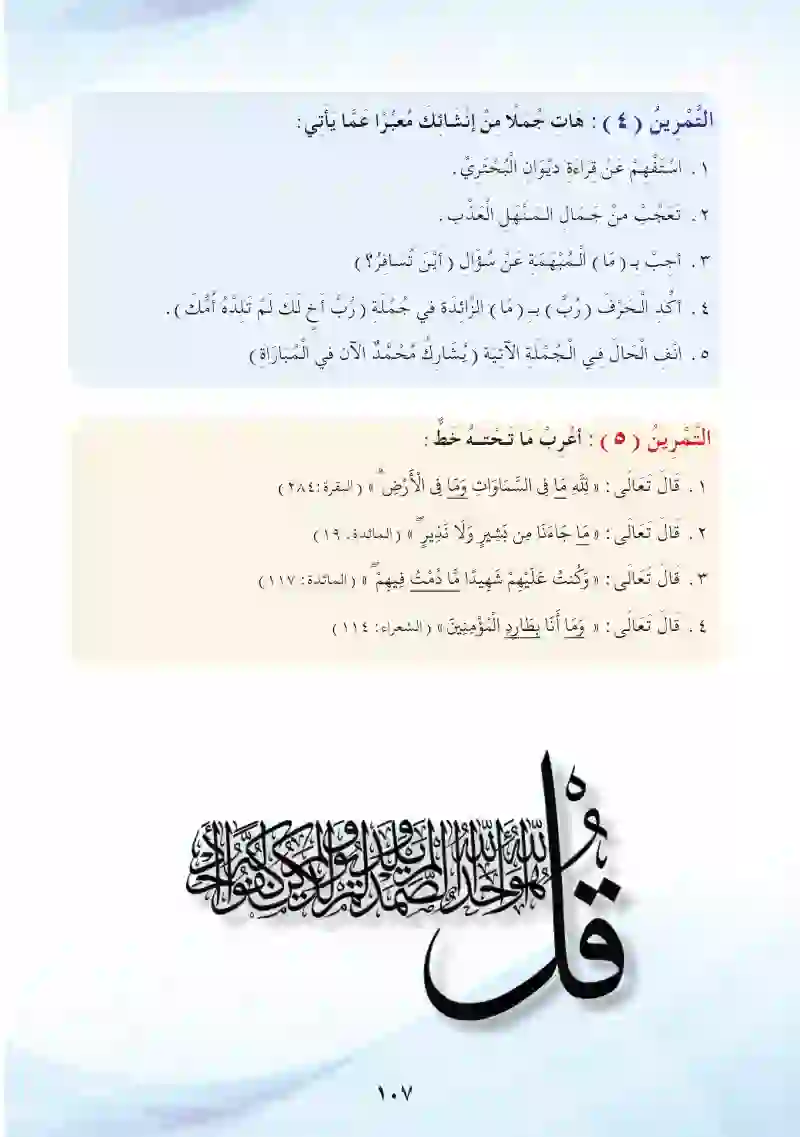 التَّمْرِينُ ( ٤ ) : هَاتِ جُمَلًا مِنْ إنْشَائِكَ مُعبِّرًا عَمَّا يَأتي:
١ . اسْتَفْهِمْ عَنْ قِرَاءَةِ دِيْوَانِ الْبُحْتَرِيِّ.
٢ . تَعَجَّبْ مِنْ جَمَالِ الـمَنْهَلِ الْعَذْبِ.
٣ . أجِبْ بـ ( مَا ) الْـمُبْهَمَةِ عَنْ سُؤَالِ ( أيْنَ تُسَافِرُ؟ )
٤ . أكِّدِ الْـحَرْفَ ( رُبَّ ) بـِ ( مَا ) الزَّائِدَة في جُمْلَةِ ( رُبَّ أخٍ لَكَ لَمْ تَلِدْهُ أُمُّكَ ) .
٥ . انْفِ الْحَالَ فِـي الْـجُمْلَةِ الآتِيَة ( يُشَارِكُ مُحَمَّدٌ الآن في الْـمُبَارَاةِ )
التَّمْرِينُ ( ٥ ) : أعْرِبْ مَا تَـحْتَــهُ خَطٌّ :
١ . قَالَ تَعَالَى: « لِلَّهِ مَا فِى السَّمَاوَاتِ وَمَا فِى الْأَرْضِ ۗ » ( البقرة: ٢٨٤ )
٢ . قَالَ تَعَالَى: « مَا جَاءَنَا مِن بَشِيرٍ وَلَا نَذِيرٍ ۖ » ( المائدة . ١٩ )
٣ . قَالَ تَعَالَى: « وَكُنتُ عَلَيْهِمْ شَهِيدًا مَّا دُمْتُ فِيهِمْ ۖ » ( المائدة: ١١٧ )
٤ . قَالَ تَعَالَى: « وَمَا أَنَا بِطَارِدِ الْمُؤْمِنِينَ » ( الشعراء: ١١٤ )
قُلْ هُوَ اللَّهُ أَحَدٌ اللَّهُ الصَّمَدُ لَمْ يَلِدْ وَلَمْ يُولَدْ وَلَمْ يَكُن لَّهُ كُفُوًا أَحَدٌ
١٠٧